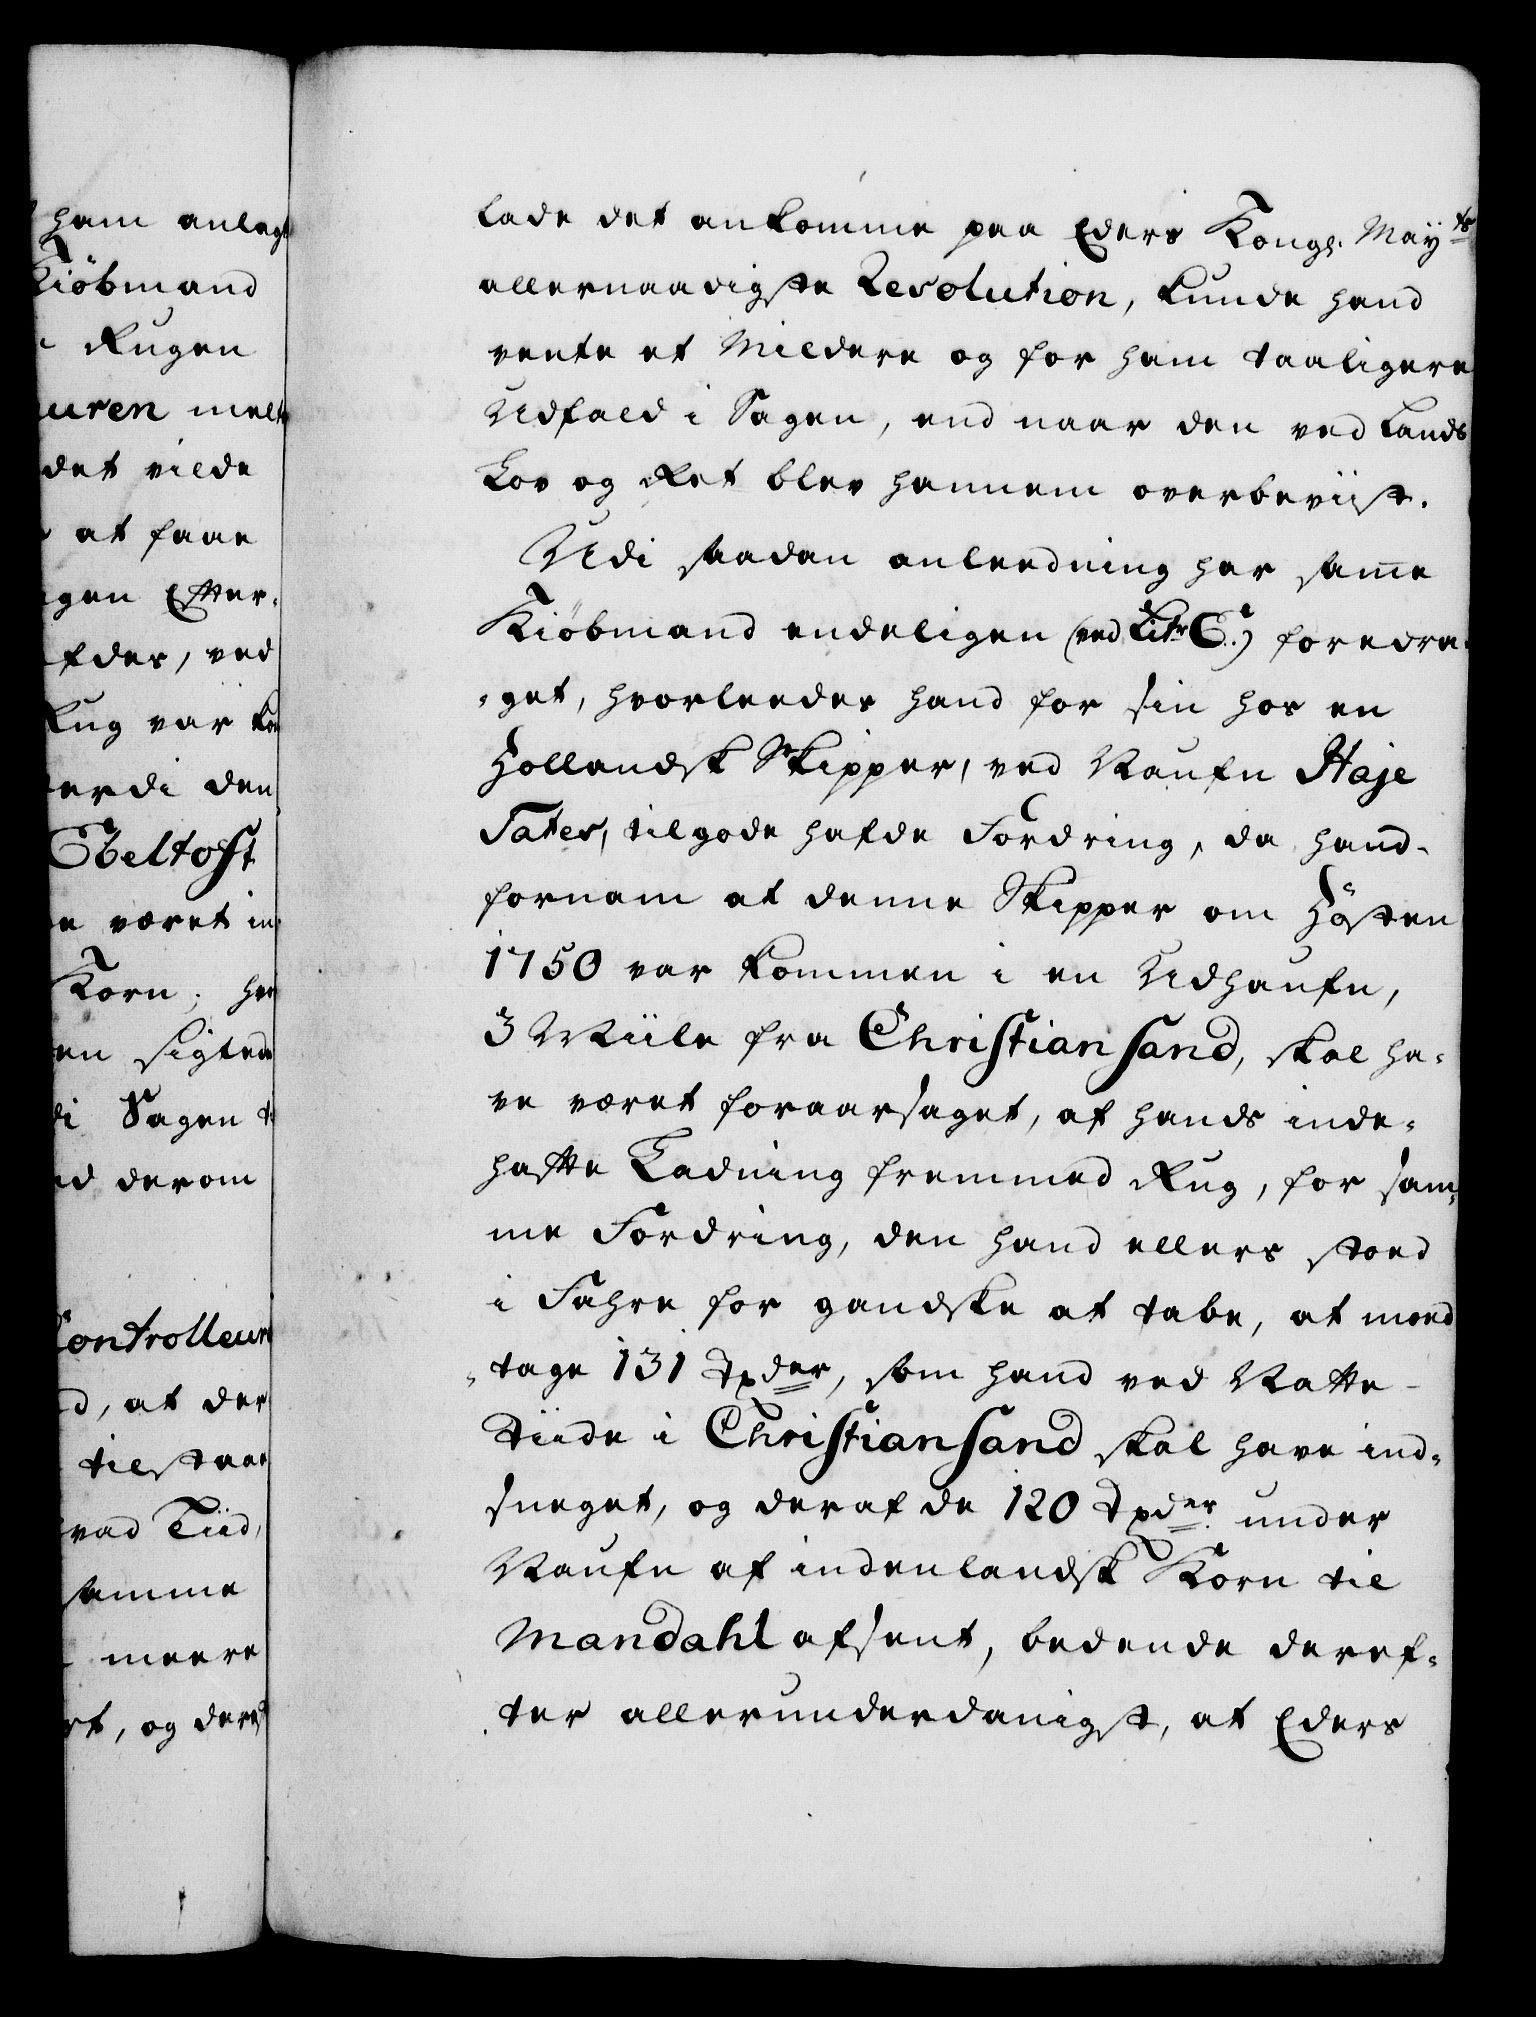 ham anlagt
Kiöbmand
Rugen
uren melt
det vilde
at faae
gen Efter-
fder, ved
Rug var
erdi den
Ebeltoft
e været in
Korn; her
en sigted
di Sagen
d derom
Controlleur
d, at der
tilstaar
vad Tiid,
samme
meere
rt, og der
lade det ankomme paa Eders Kongl. Mayts
allernaadigste Resolution, kunde hand
vente et Mildere og for ham taaligere
Udfald i Sagen, end naar den ved Lands
Lov og Ret blev hannem overbeviist.
Udi saadan anleedning har same
Kiöbmand endeligen (ved Litr C.) foredra-
-get, hvorleedes hand for sin hos en
Hollandsk Skipper, ved Naufn Haje
Tates, tilgode hafde Fordring, da hand
fornam at denne Skipper om Hösten
1750 var kommen i en Udhaufn,
3 Miile fra Christiansand, skal ha-
ve været foraarsaget, af hands inde-
hafte Ladning fremmed Rug, for sam-
me Fordring, den hand ellers stoed
i Fahre for gandske at tabe, at moed
-tage 131 Tønder, som hand ved Natte-
Tiide i Christiansand skal have ind-
sneget, og deraf de 120 Tønder under
Naufn af indenlandsk Korn til
Mandahl afsent, bedende deref-
ter allerunderdanigst, at Eders